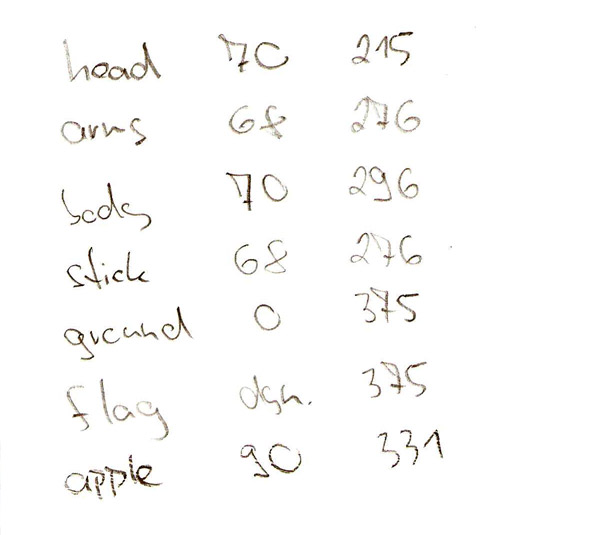 head 70 215
arms 68 276
body 70 296
stick 68 276
ground 0 375
flag dyn. 375
apple 90 331